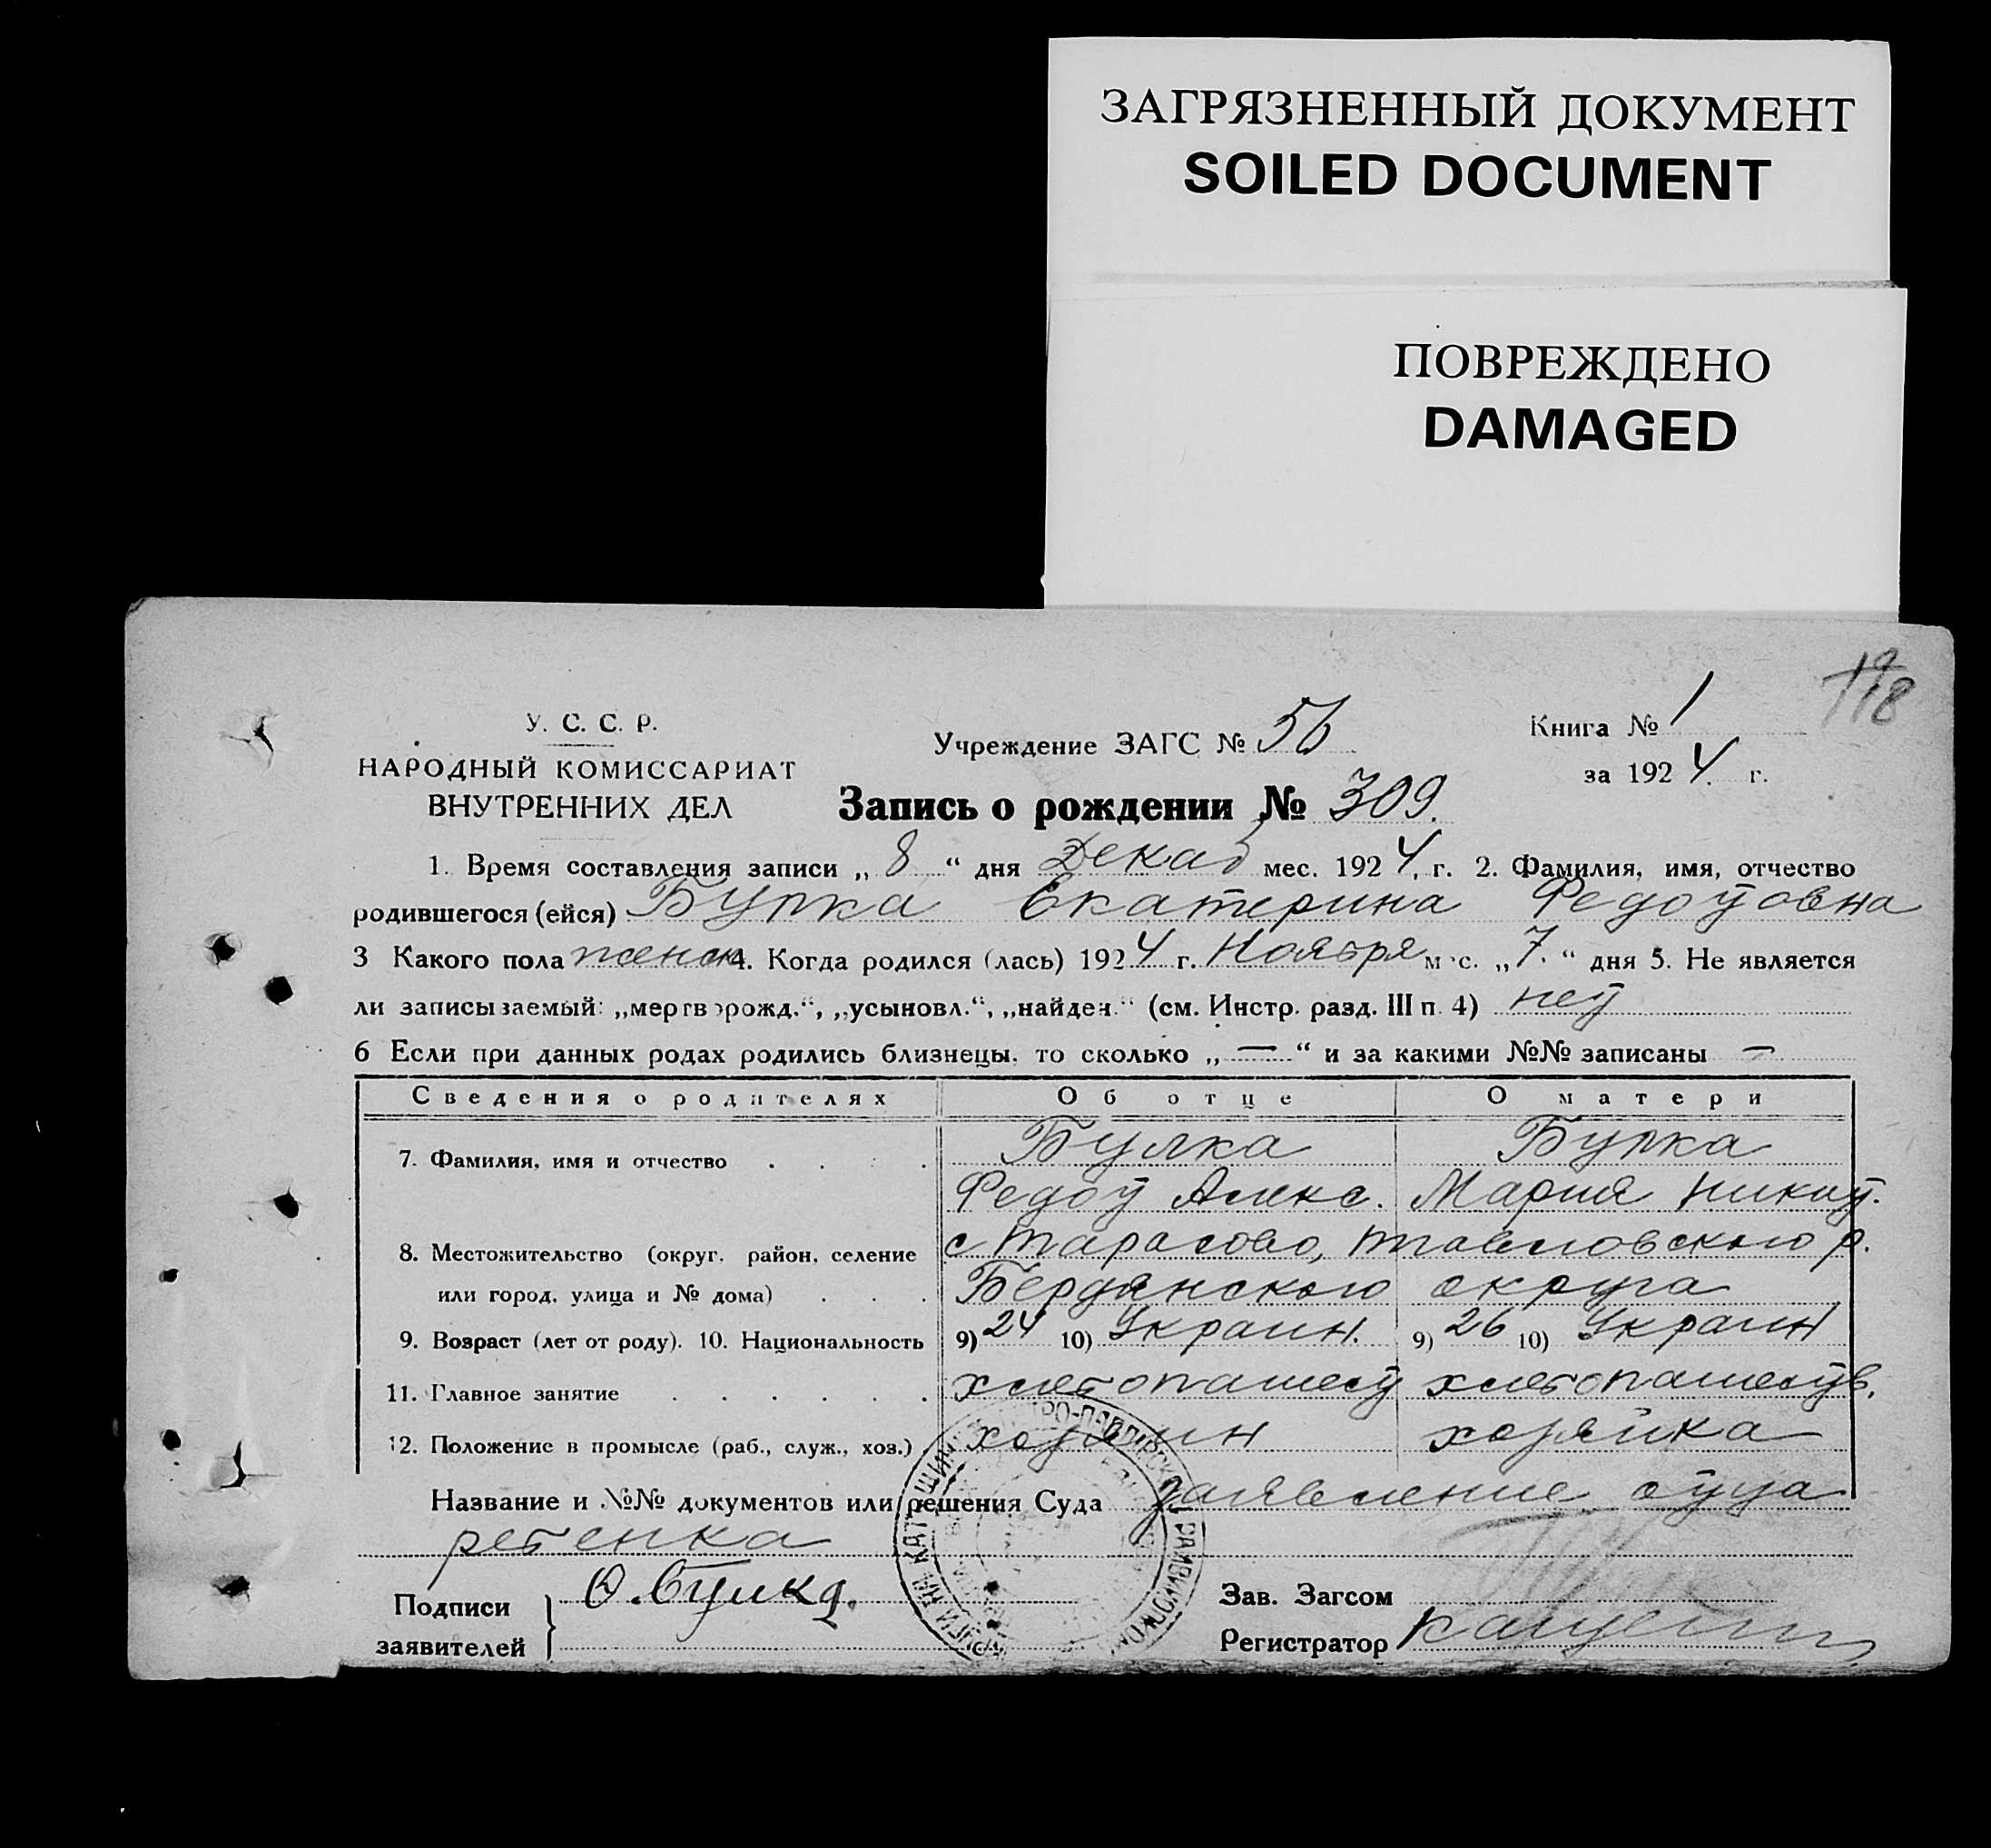 ЗАГРЯЗНЕННЫЙ ДОКУМЕНТ
SOILED DOCUMENT
ПОВРЕЖДЕНО
DAMAGED
У. С. С. Р.
НАРОДНЫЙ КОМИССАРИАТ
ВНУТРЕННИХ ДЕЛ
Учреждение ЗАГС № 56
Книга № 1
за 1924 г.
Запись о рождении № 309.
1. Время составления записи „ 8 “ дня Декаб мес. 1924. г. 2. Фамилия, имя, отчество
родившегося (ейся) Булка Екатерина Федотовна
3 Какого пола женск 4. Когда родился (лась) 1924 г. Ноября мес. „ 7. “ дня 5. Не является
ли записываемый: „мертворожд.“, „усыновл.“, „найден.“ (см. Инстр. разд. III п. 4) нет
6 Если при данных родах родились близнецы, то сколько „ — “ и за какими №№ записаны —
Сведения о родителях Об отце О матери
7. Фамилия, имя и отчество . . . . Булка Булка
Федот Алекс. Мария Никит.
8. Местожительство (округ. район, селение с Тарасово, района р.
или город, улица и № дома) . . . Бердянского округа
9. Возраст (лет от роду). 10. Национальность 9) 24 10) Украин. 9) 26 10) Украин
11. Главное занятие . . . . . . хлебопашест хлебопашеств.
12. Положение в промысле (раб., служ., хоз.) хозяин хозяйка
Название и №№ документов или решения Суда заявление отца
ребенка
Подписи
заявителей
Ф. Булка.
Зав. Загсом
Регистратор